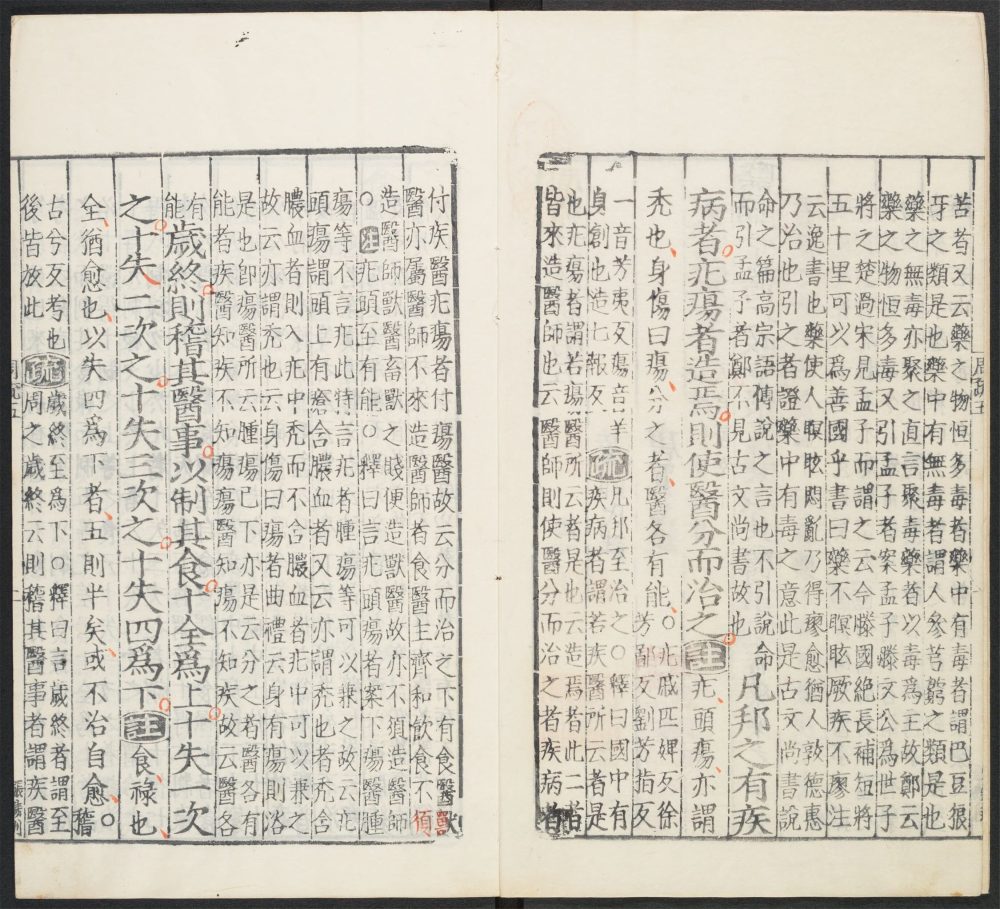 苦者又云藥之物恒多毒者藥中有毒者謂巴豆狼
牙之類是也藥中有無毒者謂人參芎藭之類是也
藥之無毒亦聚之直言聚毒藥者以毒爲主故鄭云
藥之物恒多毒又引孟子者案孟子滕文公爲世子
將之楚過宋見孟子而謂之云今滕國絕長補短將
五十里可以爲善國乎書曰藥不瞑眩厥疾不瘳注
云逸書也藥使人瞑眩悶亂乃得瘳愈猶人敦德惠
乃治也引之者證藥中有毒之意此是古文尚書說
命之篇高宗語傅說之言也不引說命
而引孟子者鄭不見古文尚書故也
凡邦之有疾
病者疕瘍者造焉則使醫分而治之註疕頭瘍亦謂
秃也身傷曰瘍分之者醫各有能○疕戚匹婢反徐
芳鄙反劉芳指反
一音芳夷反瘍音羊
身創也造七報反
疏凡邦至治之○釋曰國中有
疾病者謂若疾醫所云者是
也疕瘍者謂若瘍醫所云者是也云造焉者此二者
皆來造醫師也云醫師則使醫分而治之者疾病者
付疾醫疕瘍者付瘍醫故云分而治之下有食醫獸
醫亦屬醫師不來造醫師者食醫主齊和飲食不須
造醫師獸醫畜獸之賤便造獸醫故亦不須造醫師
○注疕頭至有能○釋曰言疕頭瘍者案下瘍醫腫
瘍等不言疕此特言疕者腫瘍等可以兼之故云疕
頭瘍謂頭上有瘡含膿血者又云亦謂秃也者秃含
膿血者則入疕中秃而不含膿血者疕中可以兼之
故云亦謂秃也云身傷曰瘍者曲禮云身有瘍則浴
是也即瘍醫所云腫瘍已下亦是云分之者醫各有
能者疾醫知疾不知瘍瘍醫知瘍不知疾故云醫各
有
能
歲終則稽其醫事以制其食十全爲上十失一次
之十失二次之十失三次之十失四爲下註食祿也
全猶愈也以失四爲下者五則半矣或不治自愈○稽
古兮反考也
後皆放此
疏歲終至爲下○釋曰言歲終者謂至
周之歲終云則稽其醫事者謂疾醫